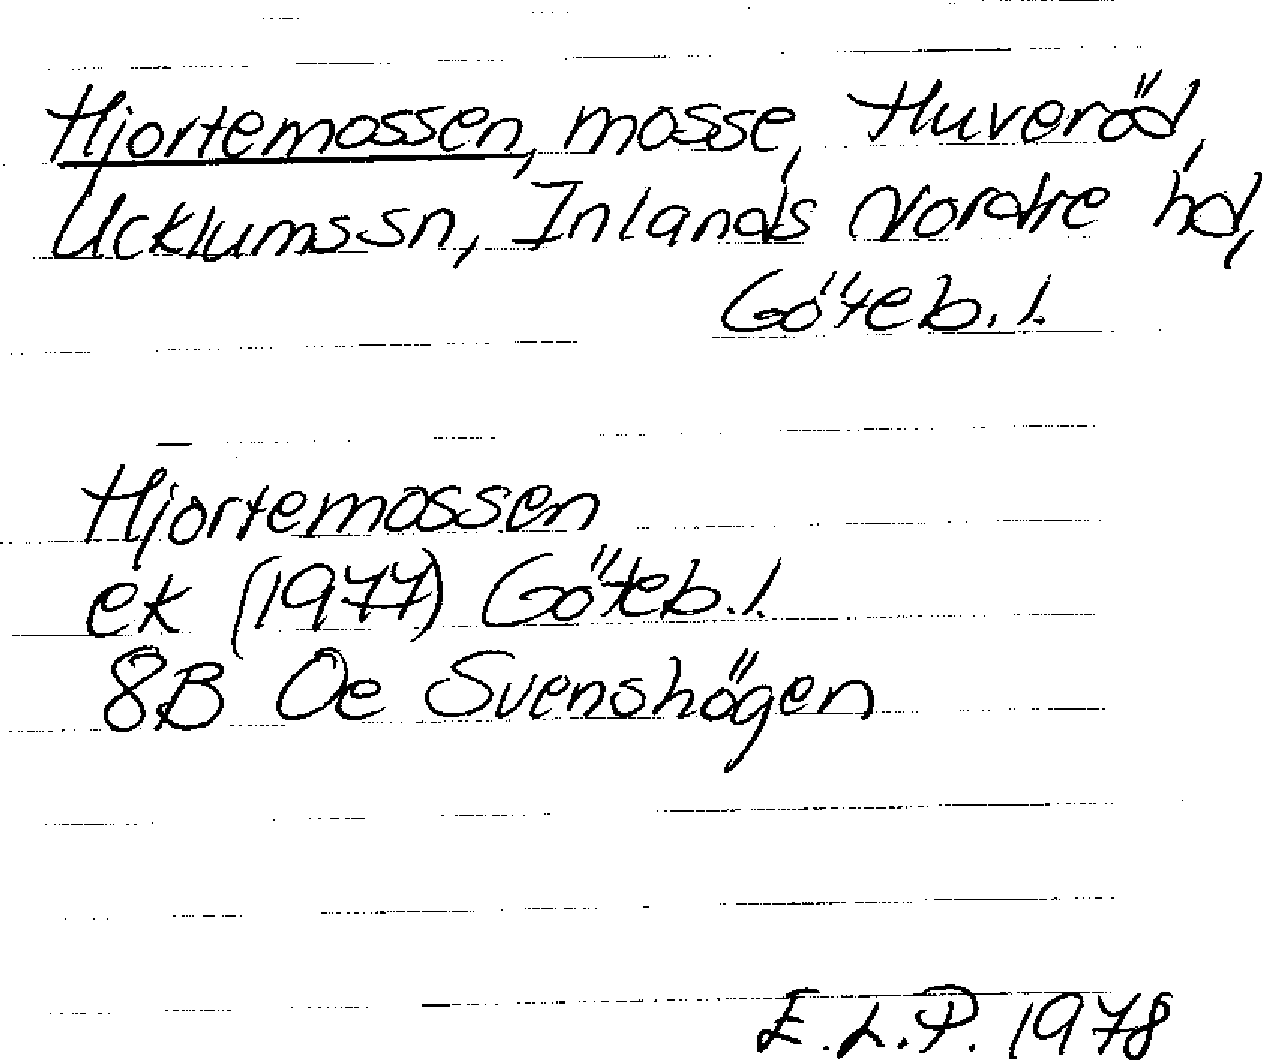 Hjortemossen, mosse, Huveröd,
Ucklumssn, Inlands Nordre hd,
Göteb. l.
Hjortemossen
ek (1977) Göteb. l.
8B Oe Svenshögen
E.L.P. 1978